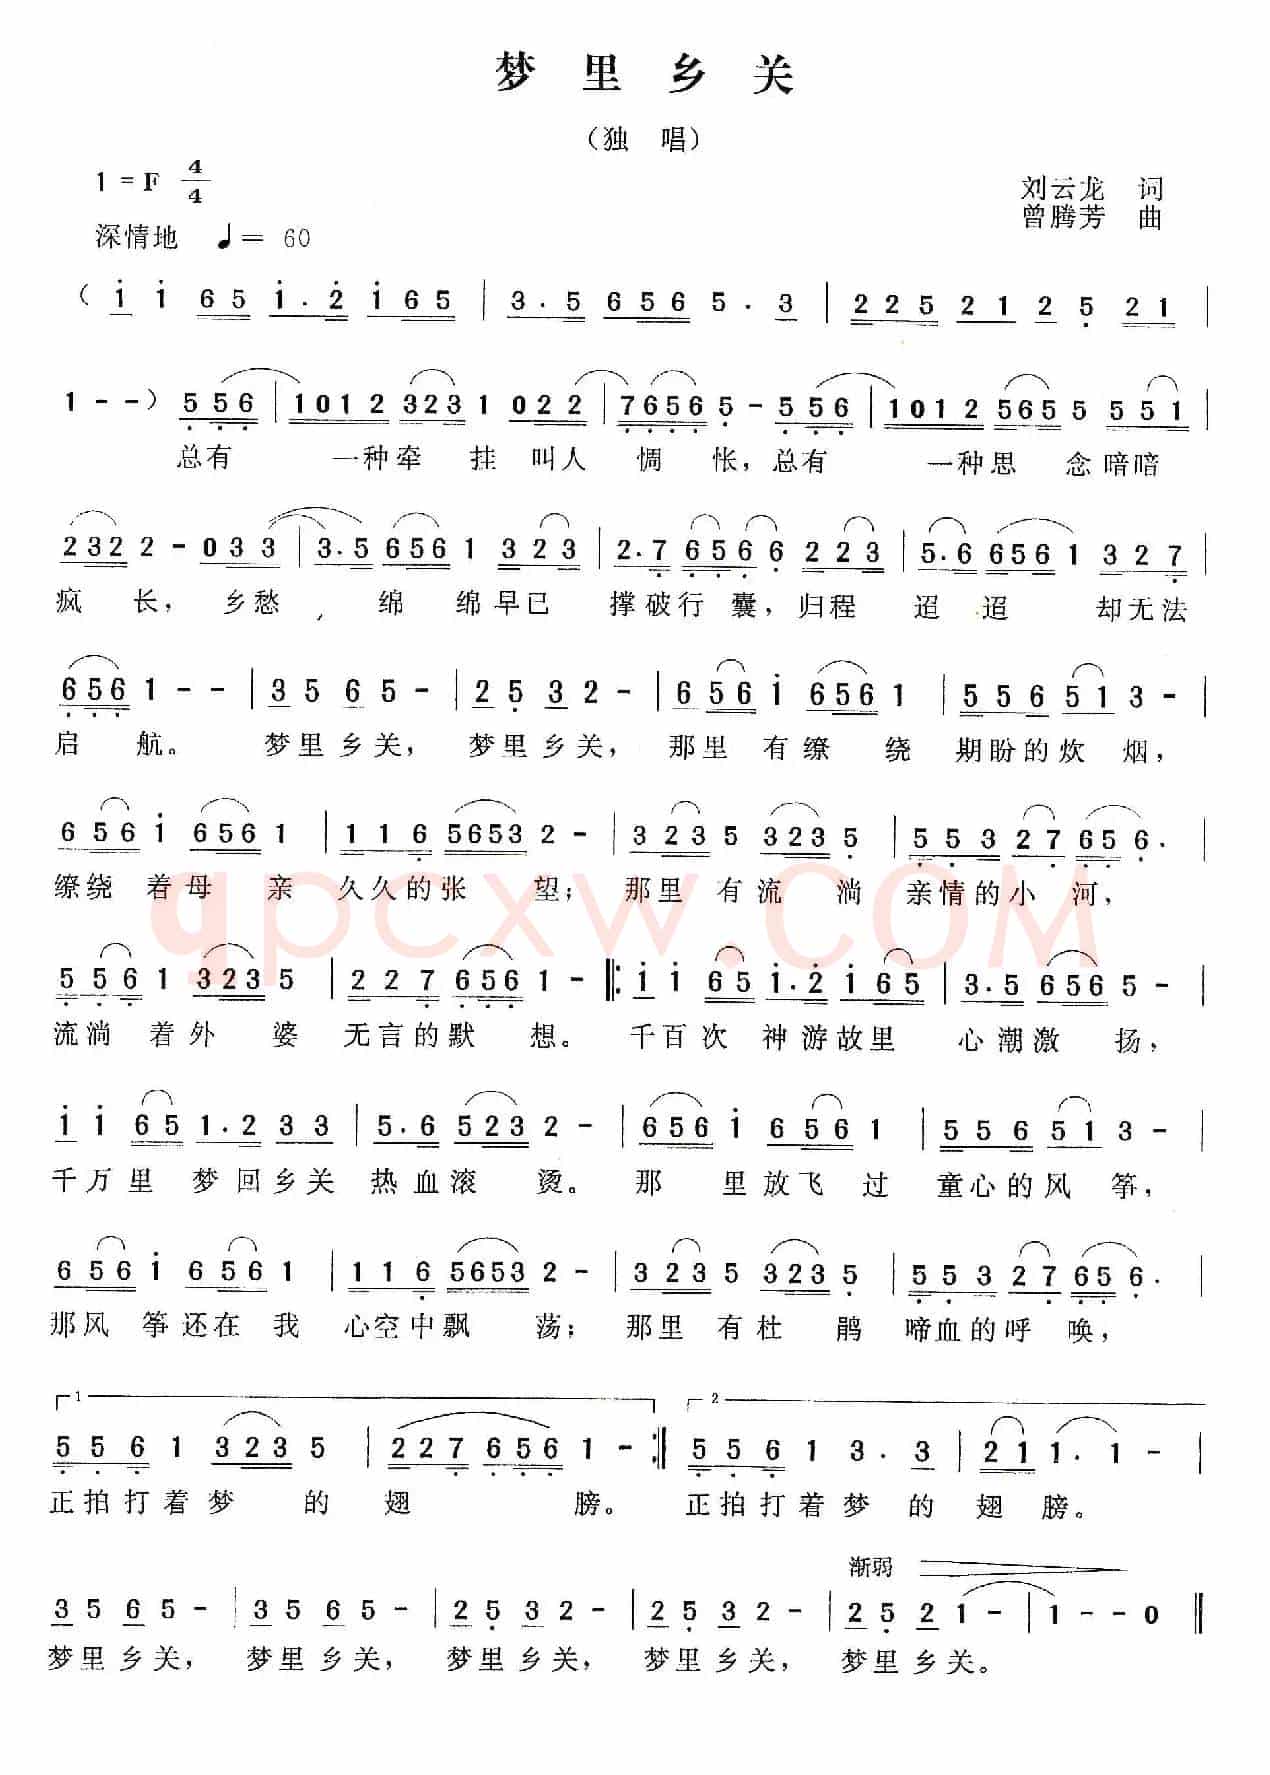 梦里乡关
（独 唱）
1 = F 4/4
刘云龙 词
曾腾芳 曲
深情地 ♩= 60
( i i 6 5 i · 2 i 6 5 | 3 · 5 6 5 6 5 · 3 | 2 2 5 2 1 2 5 2 1 |
1 - - ) 5 5 6 | 1 0 1 2 3 2 3 1 0 2 2 | 7 6 5 6 5 - 5 5 6 | 1 0 1 2 5 6 5 5 5 5 1 |
总有 一种牵 挂 叫人 惆 怅，总有 一种思 念暗暗
2 3 2 2 - 0 3 3 | 3 · 5 6 5 6 1 3 2 3 | 2 · 7 6 5 6 6 2 2 3 | 5 · 6 6 5 6 1 3 2 7 |
疯 长， 乡愁， 绵 绵早已 撑破行 囊，归程 迢 迢 却无法
6 5 6 1 - - | 3 5 6 5 - | 2 5 3 2 - | 6 5 6 i 6 5 6 1 | 5 5 6 5 1 3 - |
启 航。 梦里乡关， 梦里乡关， 那里 有缭 绕 期盼的炊 烟，
6 5 6 i 6 5 6 1 | 1 1 6 5 6 5 3 2 - | 3 2 3 5 3 2 3 5 | 5 5 3 2 7 6 5 6 · |
缭绕 着母 亲 久久的张 望； 那里 有流 淌 亲情的小 河，
qpcxw.COM
5 5 6 1 3 2 3 5 | 2 2 7 6 5 6 1 - ‖: i i 6 5 i · 2 i 6 5 | 3 · 5 6 5 6 5 - |
流淌 着外 婆 无言的默 想。 千百次 神游故里 心潮激 扬，
i i 6 5 1 · 2 3 3 | 5 · 6 5 2 3 2 - | 6 5 6 i 6 5 6 1 | 5 5 6 5 1 3 - |
千万里 梦回乡关 热血滚 烫。 那 里放飞 过 童心的风 筝，
6 5 6 i 6 5 6 1 | 1 1 6 5 6 5 3 2 - | 3 2 3 5 3 2 3 5 | 5 5 3 2 7 6 5 6 · |
那风 筝还在 我 心空中飘 荡； 那里 有杜 鹃 啼血的呼 唤，
1 2
5 5 6 1 3 2 3 5 | 2 2 7 6 5 6 1 - :‖ 5 5 6 1 3 · 3 | 2 1 1 1 · 1 - |
正拍打着梦 的 翅 膀。 正拍打着梦 的 翅 膀。
渐弱
3 5 6 5 - | 3 5 6 5 - | 2 5 3 2 - | 2 5 3 2 - | 2 5 2 1 - | 1 - - 0 ‖
梦里乡关， 梦里乡关， 梦里乡关， 梦里乡关， 梦里乡关。